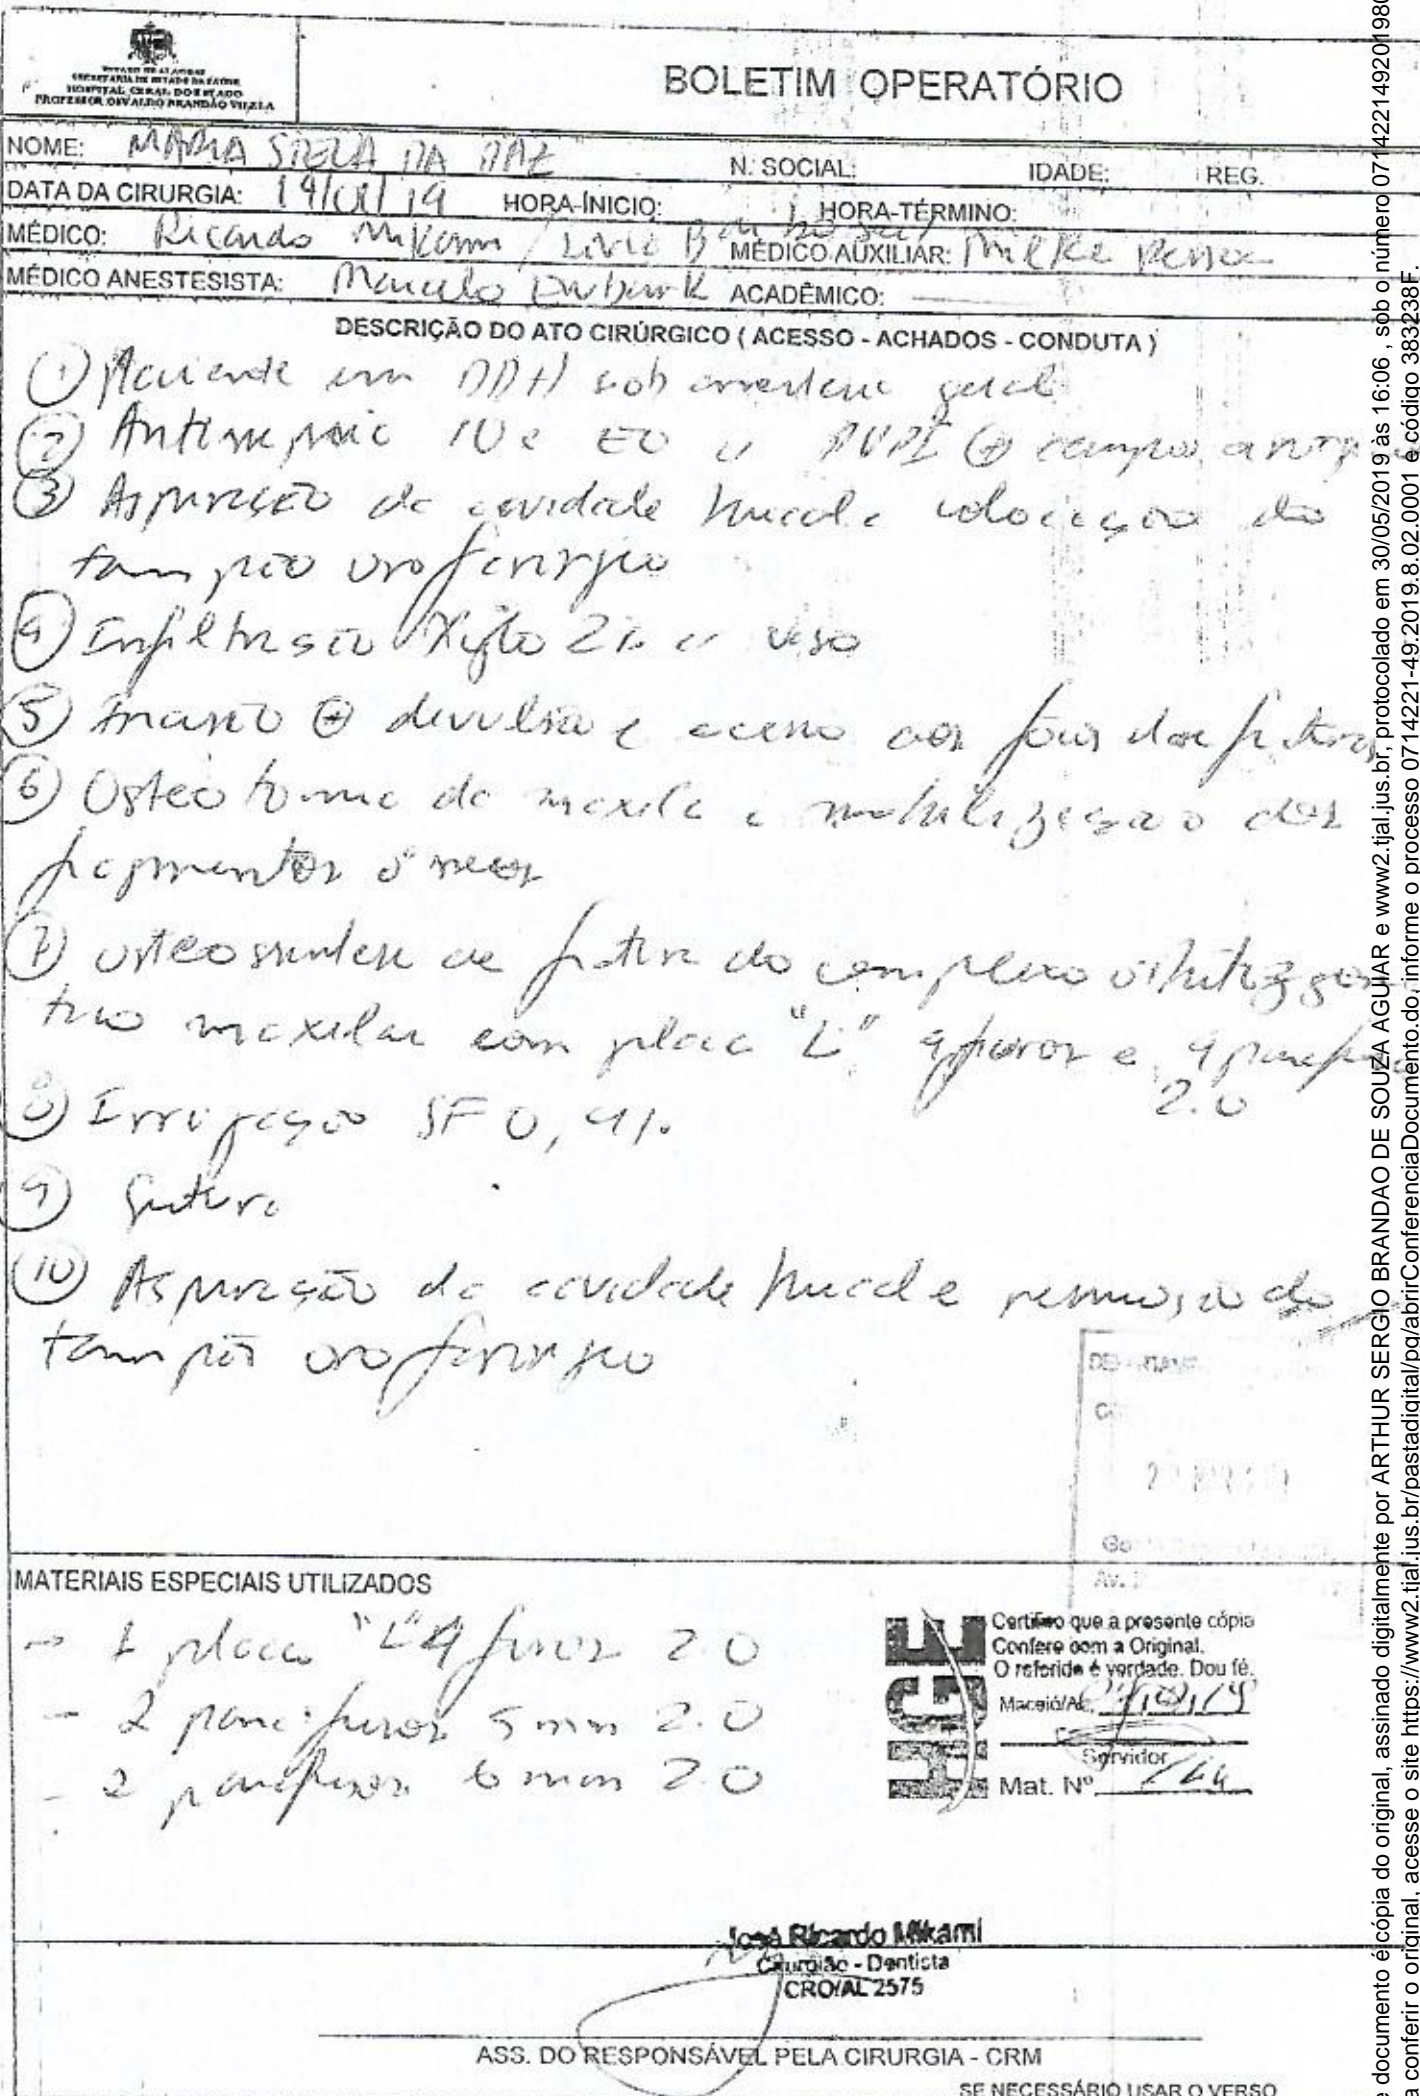 ESTADO DE ALAGOAS
SECRETARIA DE ESTADO DA SAÚDE
HOSPITAL GERAL DO ESTADO
PROFESSOR OSVALDO BRANDÃO VILELA
BOLETIM OPERATÓRIO
NOME: MARIA STELA DA PAZ N. SOCIAL: IDADE: REG.
DATA DA CIRURGIA: 19 HORA-ÍNICIO: HORA-TÉRMINO:
MÉDICO: Ricardo Mikami / Livio MÉDICO AUXILIAR:
MÉDICO ANESTESISTA: Marcelo ACADÊMICO:
DESCRIÇÃO DO ATO CIRÚRGICO ( ACESSO - ACHADOS - CONDUTA )
1 Paciente em DDH sob anestesia geral
2 Antissepsia IO e EO c/ PVPI + campos
3 Aspiração da cavidade bucal e colocação do
tampão orofaríngeo
4 Infiltração Xylo 2% c/ vaso
5 Incisão + divulsão e acesso aos focos das fraturas
6 Osteotomia da maxila e mobilização dos
fragmentos ósseos
7 osteossíntese de fratura do complexo
maxilar com placa "L" 4 furos e 4 parafusos
2.0
8 Irrigação SF 0,9%
9 Sutura
10 Aspiração da cavidade bucal e remoção do
tampão orofaríngeo
MATERIAIS ESPECIAIS UTILIZADOS
→ 1 placa "L" 4 furos 2.0
- 2 parafusos 5 mm 2.0
- 2 parafusos 6 mm 2.0
HGE
Certifico que a presente cópia
Confere com a Original.
O referido é verdade. Dou fé.
Maceió/AL
Servidor
Mat. Nº
José Ricardo Mikami
Cirurgião - Dentista
CRO/AL 2575
ASS. DO RESPONSÁVEL PELA CIRURGIA - CRM
SE NECESSÁRIO USAR O VERSO
documento é cópia do original, assinado digitalmente por ARTHUR SERGIO BRANDAO DE SOUZA AGUIAR e www2.tjal.jus.br, protocolado em 30/05/2019 às 16:06 , sob o número 071422149201980
conferir o original, acesse o site https://www2.tjal.jus.br/pastadigital/pg/abrirConferenciaDocumento.do, informe o processo 0714221-49.2019.8.02.0001 e código 383238F.